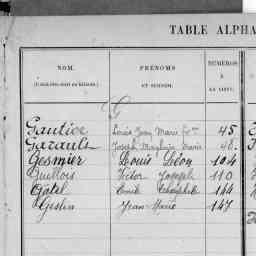 TABLE ALPHA
NOM.
PRÉNOMS
ET SURNOM.
NUMÉROS
À
LA LISTE.
G
Gautier Louis Jean Marie 45
Garault Joseph Marie 48
Gesmier Louis Léon 104
Guillois Victor Joseph 110
Gatel Emile Théophile 144
Geslin Jean Marie 147